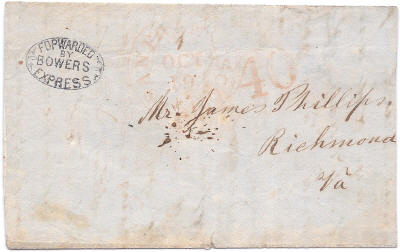 FORWARDED
BY
BOWERS
EXPRESS
40
Mr. James Phillips
Richmond
Va